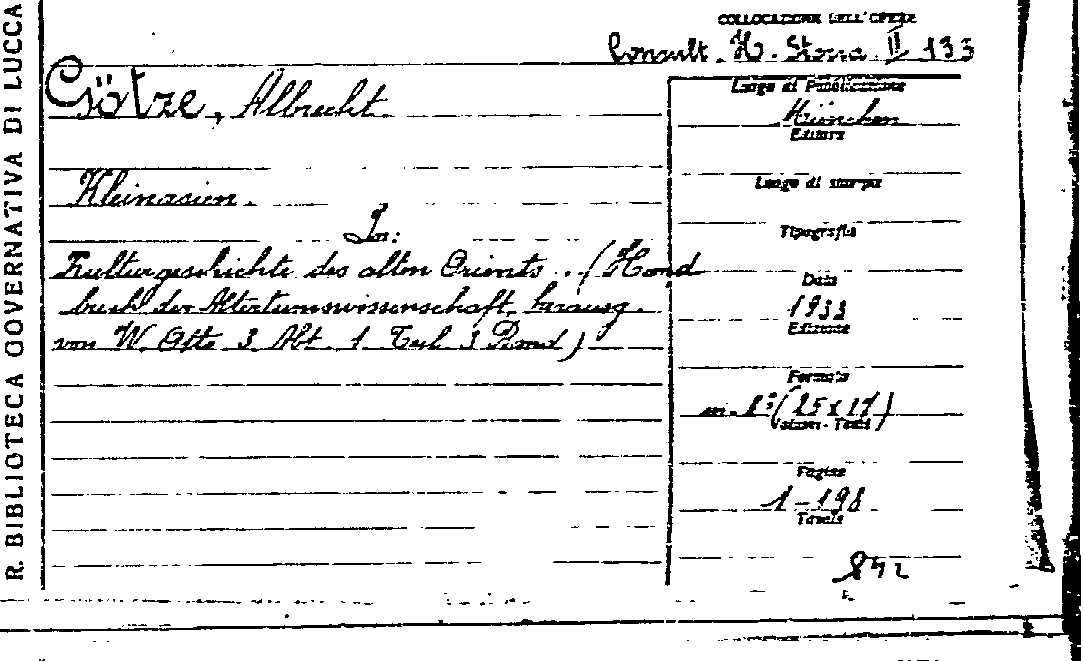 R. BIBLIOTECA GOVERNATIVA DI LUCCA
COLLOCAZIONE DELL'OPERA
Consult. H. Storia II 133
Götze, Albrecht
Kleinasien.
In:
Kulturgeschichte des alten Orients . . (Hand
buch der Altertumswissenschaft, herausg.
von W. Otto 3 Abt. 1 Teil 3 Band)
Luogo di Pubblicazione
München
Editore
Luogo di stampa
Tipografia
Data
1933
Edizione
Formato
in-8° (25 x 17)
Volumi - Tomi
Pagine
1-198
Tavole
842